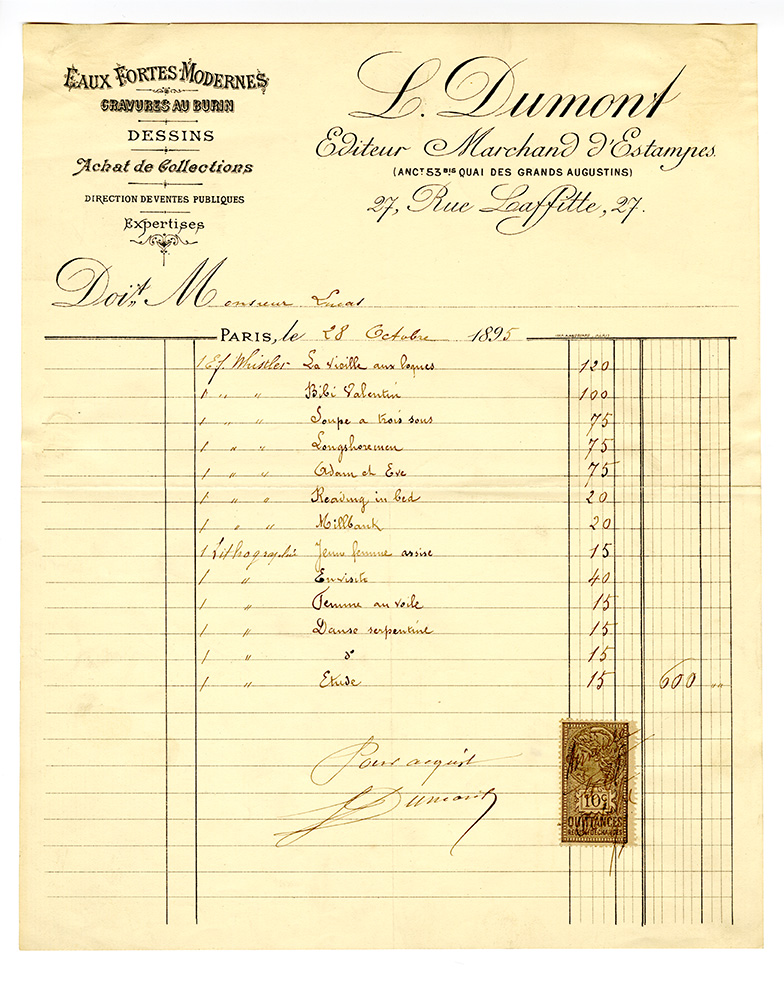 EAUX FORTES MODERNES
GRAVURES AU BURIN
DESSINS
Achat de Collections
DIRECTION DE VENTES PUBLIQUES
Expertises
L. Dumont
Editeur Marchand d'Estampes.
(ANCT 53 BIS QUAI DES GRANDS AUGUSTINS)
27, Rue Laffitte, 27.
Doit Monsieur Lucas
PARIS, le 28 Octobre 1895
1 Ef. Whistler La Vieille aux loques 120
1 " " Bibi Valentin 100
1 " " Soupe a trois sous 75
1 " " Longshoremen 75
1 " " Adam et Eve 75
1 " " Reading in bed 20
1 " " Millbank 20
1 Lithographie Jeune femme assise 15
1 " En visite 40
1 " Femme au voile 15
1 " Danse serpentine 15
1 " do 15
1 " Etude 15 600 "
Pour acquit
L Dumont
10c
QUITTANCES